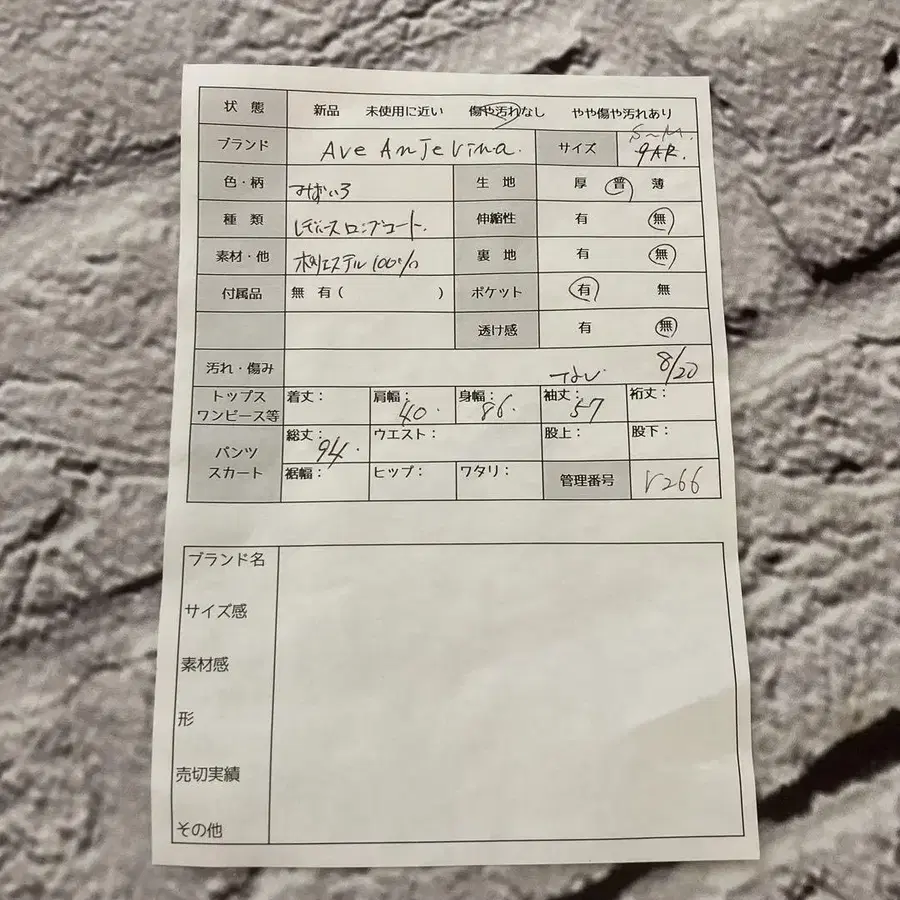 状 態 新品 未使用に近い 傷や汚れなし やや傷や汚れあり
ブランド Ave Anjevina. サイズ S~M. 9AR.
色・柄 みずいろ 生 地 厚 普 薄
種 類 レディースロングコート. 伸縮性 有 無
素材・他 ポリエステル100% 裏 地 有 無
付属品 無 有( ) ポケット 有 無
透け感 有 無
汚れ・傷み なし 8/20
トップス ワンピース等 着丈: 肩幅: 40. 身幅: 86. 袖丈: 57 裄丈:
パンツ スカート 総丈: 94. ウエスト: 股上: 股下:
裾幅: ヒップ: ワタリ: 管理番号 V266
ブランド名
サイズ感
素材感
形
売切実績
その他